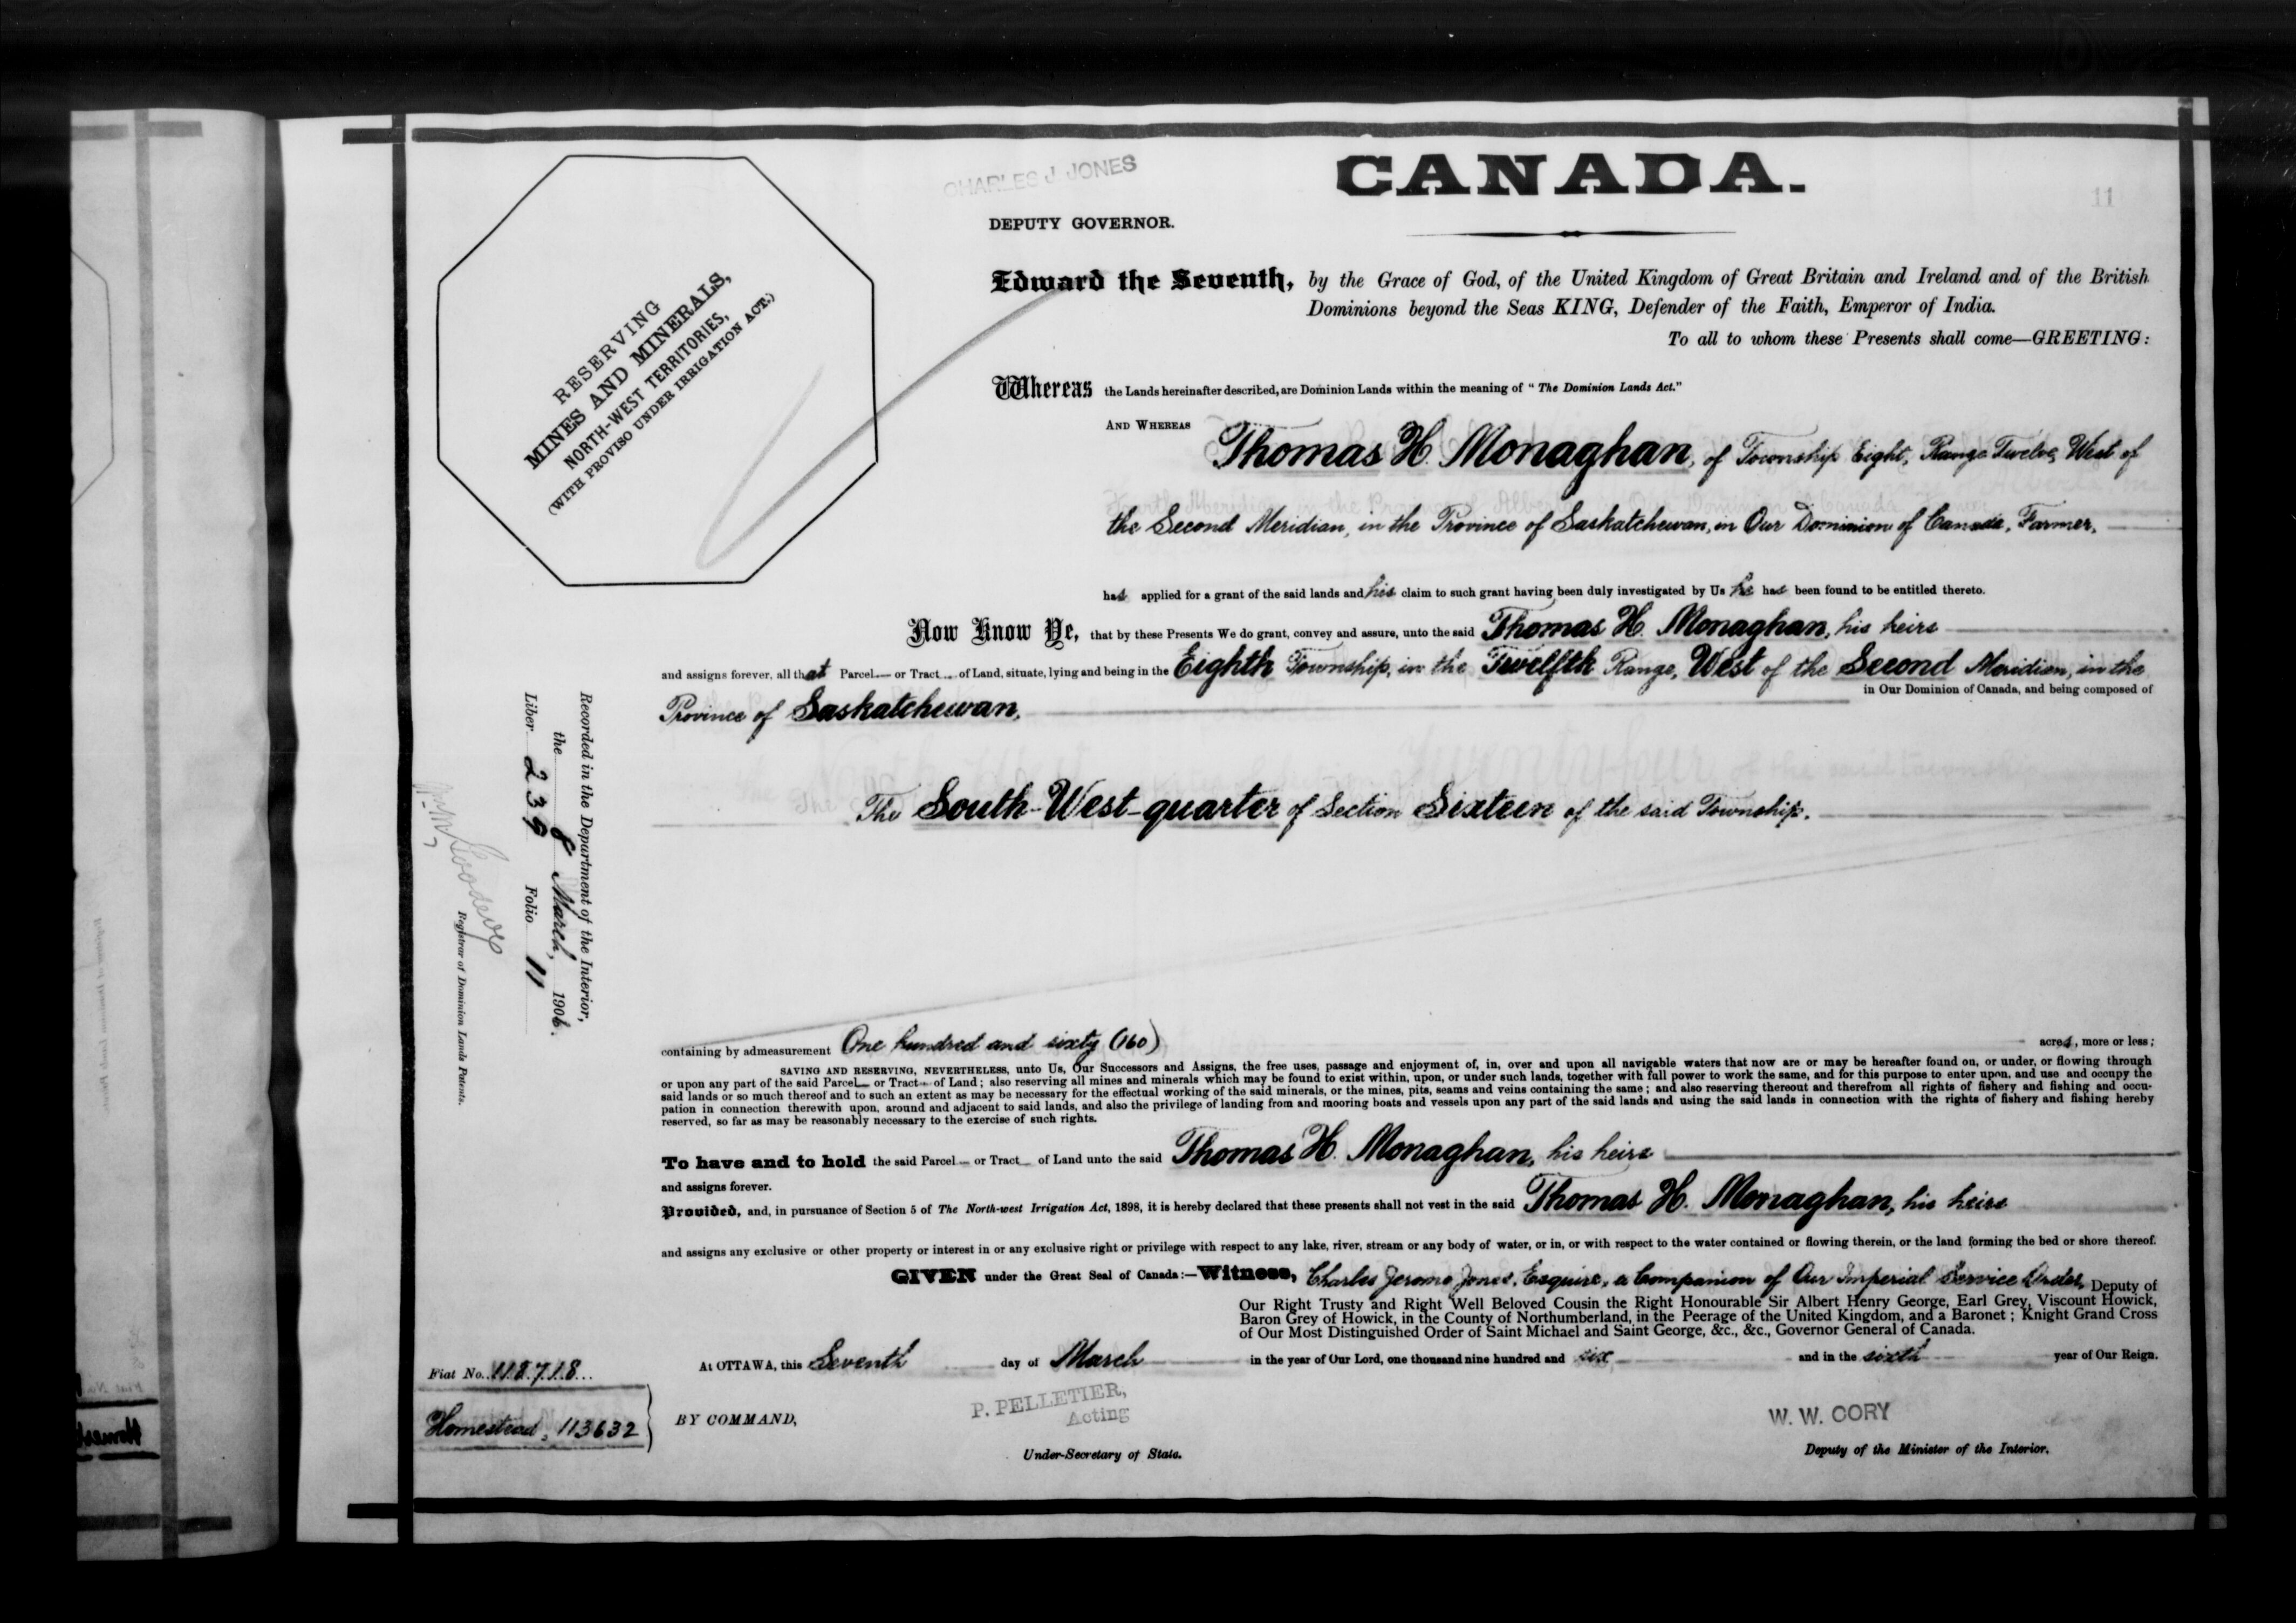 CHARLES J JONES
CANADA.
11
DEPUTY GOVERNOR.
RESERVING
MINES AND MINERALS,
NORTH-WEST TERRITORIES,
(WITH PROVISO UNDER IRRIGATION ACT.)
Edward the Seventh, by the Grace of God, of the United Kingdom of Great Britain and Ireland and of the British
Dominions beyond the Seas KING, Defender of the Faith, Emperor of India.
To all to whom these Presents shall come—GREETING:
Whereas the Lands hereinafter described, are Dominion Lands within the meaning of "The Dominion Lands Act."
AND WHEREAS
Thomas H. Monaghan, of Township Eight, Range Twelve, West of
the Second Meridian, in the Province of Saskatchewan, in Our Dominion of Canada, Farmer,
has applied for a grant of the said lands and his claim to such grant having been duly investigated by Us he has been found to be entitled thereto.
Now Know Ye, that by these Presents We do grant, convey and assure, unto the said Thomas H. Monaghan, his heirs
and assigns forever, all that Parcel or Tract of Land, situate, lying and being in the Eighth Township, in the Twelfth Range, West of the Second Meridian, in the
in Our Dominion of Canada, and being composed of
Province of Saskatchewan,
The South-West-quarter of Section Sixteen of the said Township.
Recorded in the Department of the Interior,
the 8 March, 1906.
Liber 239 Folio 11
Registrar of Dominion Lands Patents.
containing by admeasurement One hundred and sixty (160) acres, more or less;
SAVING AND RESERVING, NEVERTHELESS, unto Us, Our Successors and Assigns, the free uses, passage and enjoyment of, in, over and upon all navigable waters that now are or may be hereafter found on, or under, or flowing through
or upon any part of the said Parcel or Tract of Land; also reserving all mines and minerals which may be found to exist within, upon, or under such lands, together with full power to work the same, and for this purpose to enter upon, and use and occupy the
said lands or so much thereof and to such an extent as may be necessary for the effectual working of the said minerals, or the mines, pits, seams and veins containing the same; and also reserving thereout and therefrom all rights of fishery and fishing and occu-
pation in connection therewith upon, around and adjacent to said lands, and also the privilege of landing from and mooring boats and vessels upon any part of the said lands and using the said lands in connection with the rights of fishery and fishing hereby
reserved, so far as may be reasonably necessary to the exercise of such rights.
To have and to hold the said Parcel or Tract of Land unto the said Thomas H. Monaghan, his heirs
and assigns forever.
Provided, and, in pursuance of Section 5 of The North-west Irrigation Act, 1898, it is hereby declared that these presents shall not vest in the said Thomas H. Monaghan, his heirs
and assigns any exclusive or other property or interest in or any exclusive right or privilege with respect to any lake, river, stream or any body of water, or in, or with respect to the water contained or flowing therein, or the land forming the bed or shore thereof.
GIVEN under the Great Seal of Canada:—Witness, Charles Jerome Jones, Esquire, a Companion of Our Imperial Service Order, Deputy of
Our Right Trusty and Right Well Beloved Cousin the Right Honourable Sir Albert Henry George, Earl Grey, Viscount Howick,
Baron Grey of Howick, in the County of Northumberland, in the Peerage of the United Kingdom, and a Baronet; Knight Grand Cross
of Our Most Distinguished Order of Saint Michael and Saint George, &c., &c., Governor General of Canada.
At OTTAWA, this Seventh day of March in the year of Our Lord, one thousand nine hundred and six and in the sixth year of Our Reign.
Fiat No. 118718
Homestead, 113632
BY COMMAND,
P. PELLETIER,
Acting
Under-Secretary of State.
W. W. CORY
Deputy of the Minister of the Interior.